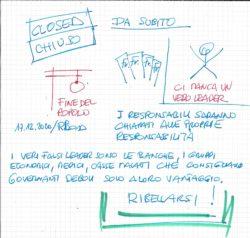 CLOSED
CHIUSO
DA SUBITO
CI MANCA UN
VERO LEADER
FINE DEL
POPOLO
17.12.2020/
I RESPONSABILI SARANNO
CHIAMATI ALLE PROPRIE
RESPONSABILITÀ
I VERI FONSI LEADER SONO LE BANCHE, I GRUPPI
ECONOMICI, MEDICI, CHE CONSIGLIANO
GOVERNANTI DEBOLI SOLO A LORO VANTAGGIO.
RIBELLARSI!